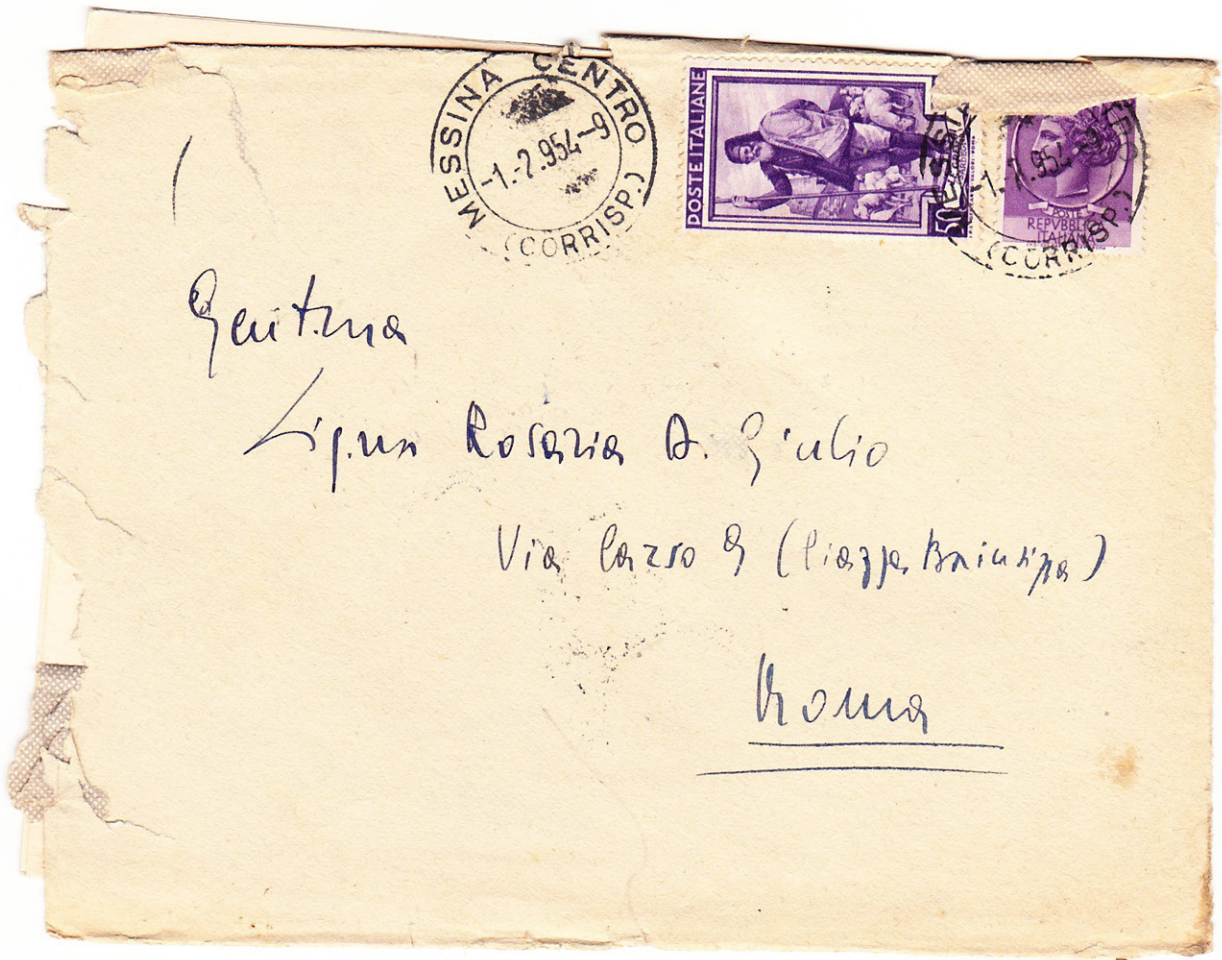 MESSINA CENTRO
-1.-2.954-9
(CORRISP.)
POSTE ITALIANE
50
-1.2.954-9
(CORRISP.)
POSTE
REPVBBLICA
ITALIANA
Gent.ma
Sig.na Rosaria D. Giulio
Via Carso 9 (Piazza Bainsizza)
Roma